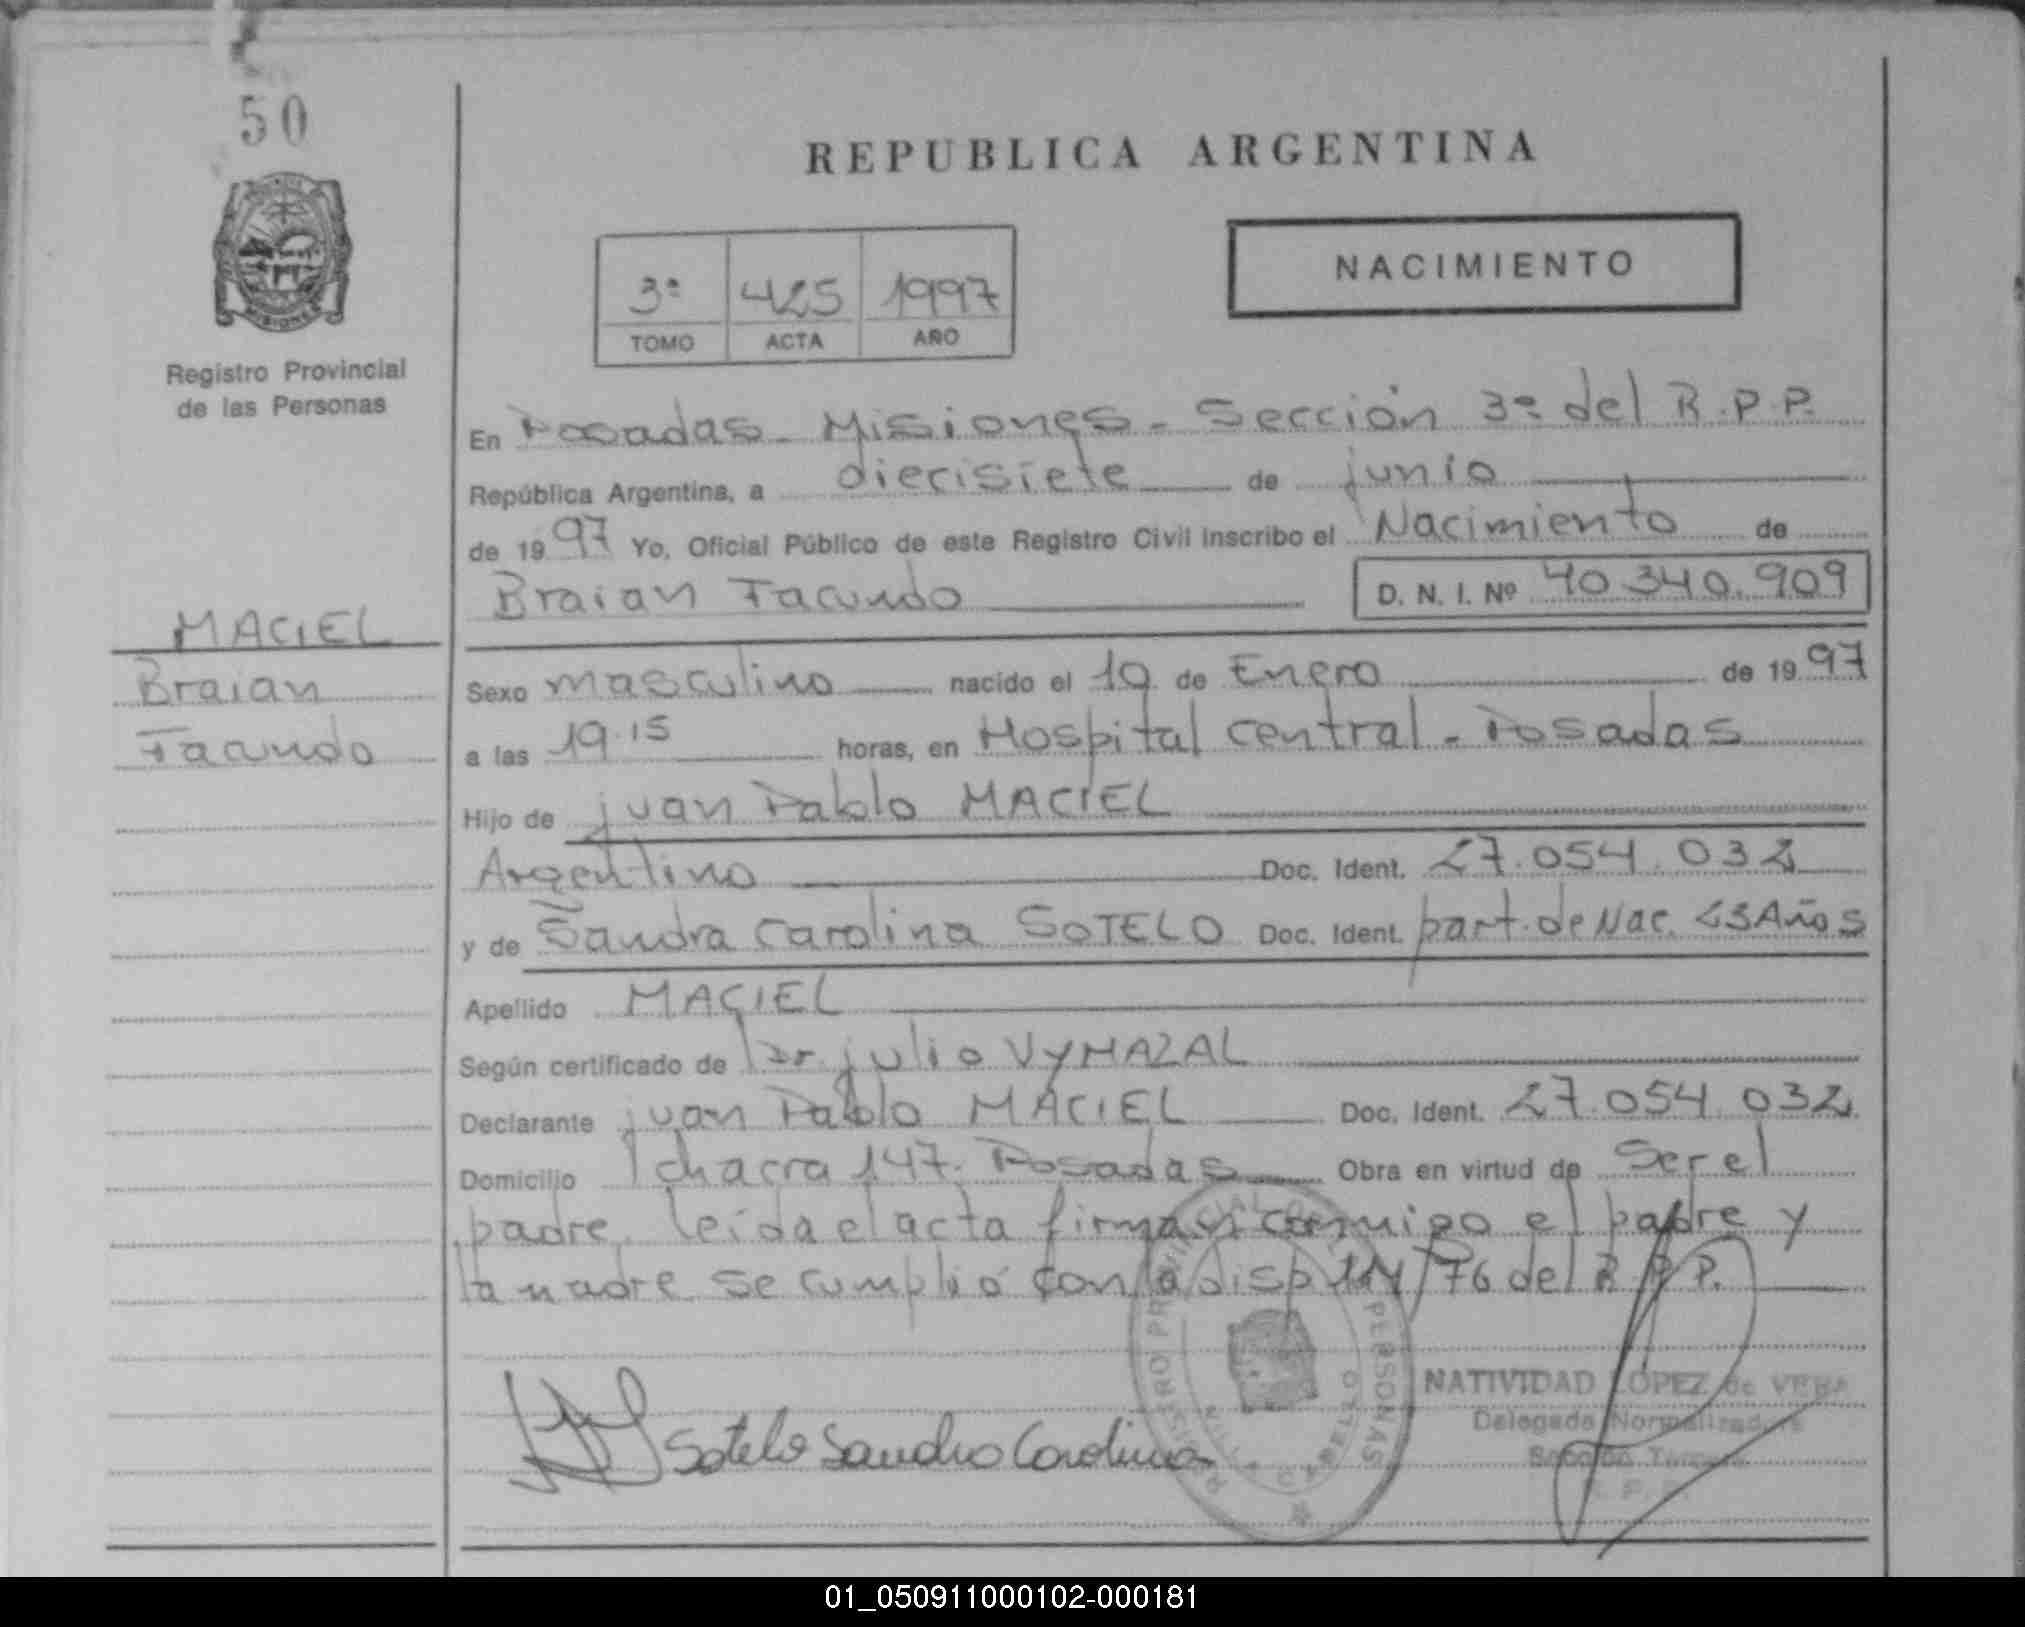 50
REPUBLICA ARGENTINA
NACIMIENTO
3º 425 1997
TOMO ACTA AÑO
MISIONES
Registro Provincial
de las Personas
En Posadas - Misiones - Sección 3º del R.P.P.
República Argentina, a diecisiete de junio
de 1997 Yo, Oficial Público de este Registro Civil inscribo el Nacimiento de
Braian Facundo D. N. I. Nº 40.340.909
MACIEL
Braian
Facundo
Sexo masculino nacido el 19 de Enero de 1997
a las 19.15 horas, en Hospital central - Posadas
Hijo de juan Pablo MACIEL
Argentino Doc. Ident. 27.054.032
y de Sandra Carolina SOTELO Doc. Ident. part. de Nac. 23 Años
Apellido MACIEL
Según certificado de Dr. julio VYMAZAL
Declarante juan Pablo MACIEL Doc. Ident. 27.054.032
Domicilio chacra 147. Posadas Obra en virtud de Ser el
padre. leida el acta firman conmigo el padre y
la madre se cumplió con la disp 114/76 del R.P.P.
REGISTRO PROVINCIAL DE LAS PERSONAS
VILLA CABELLO
NATIVIDAD LOPEZ de VERA
Delegada Normalizadora
Sección Tercera
R. P. P.
Sotelo Sandra Carolina
01_050911000102-000181